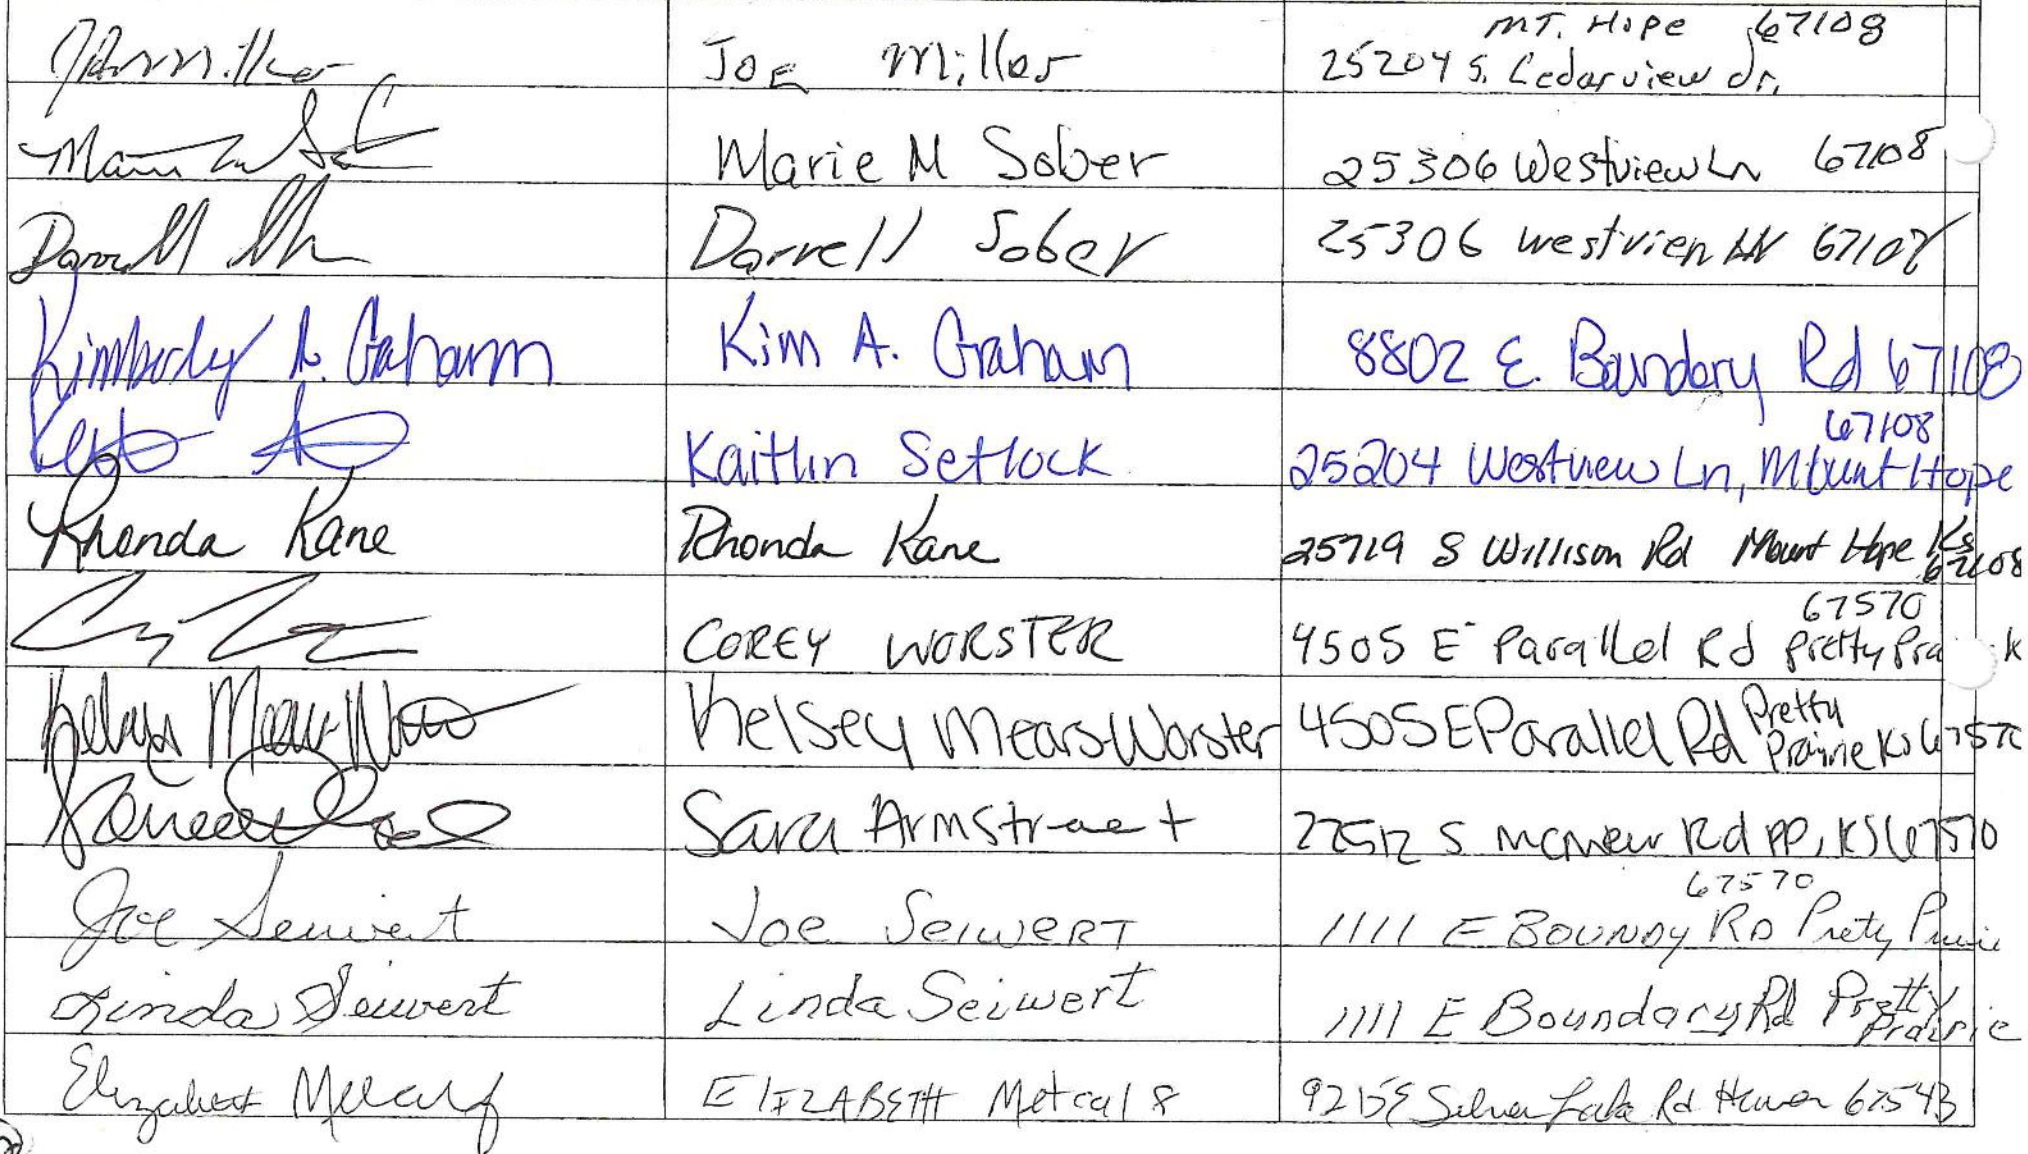 Joe Miller Joe Miller MT. Hope 67108
25204 S. Cedarview dr.
Marie M Sober 25306 Westview Ln 67108
Darrell Darrell Sober 25306 westview LN 67108
Kimberly A. Graham Kim A. Graham 8802 E. Boundary Rd 67108
67108
Kaitlin Setlock 25204 Westview Ln, Mount Hope
Rhonda Kane Rhonda Kane 25719 S Willison Rd Mount Hope Ks
67108
67570
COREY WORSTER 4505 E Parallel Rd Pretty Pra
Kelsey Mears-Worster Kelsey Mears-Worster 4505 E Parallel Rd Pretty
Prairie KS 67570
Sara 22512 S Rd PP, KS 67570
67570
Joe Seiwert Joe SEIWERT 1111 E BOUNDY RD Prety Prairie
Linda Seiwert Linda Seiwert 1111 E Boundary Rd Pretty
Prairie
Elizabeth Metcalf ELIZABETH Metcalf 9215 E Silver Lake Rd Haven 67543